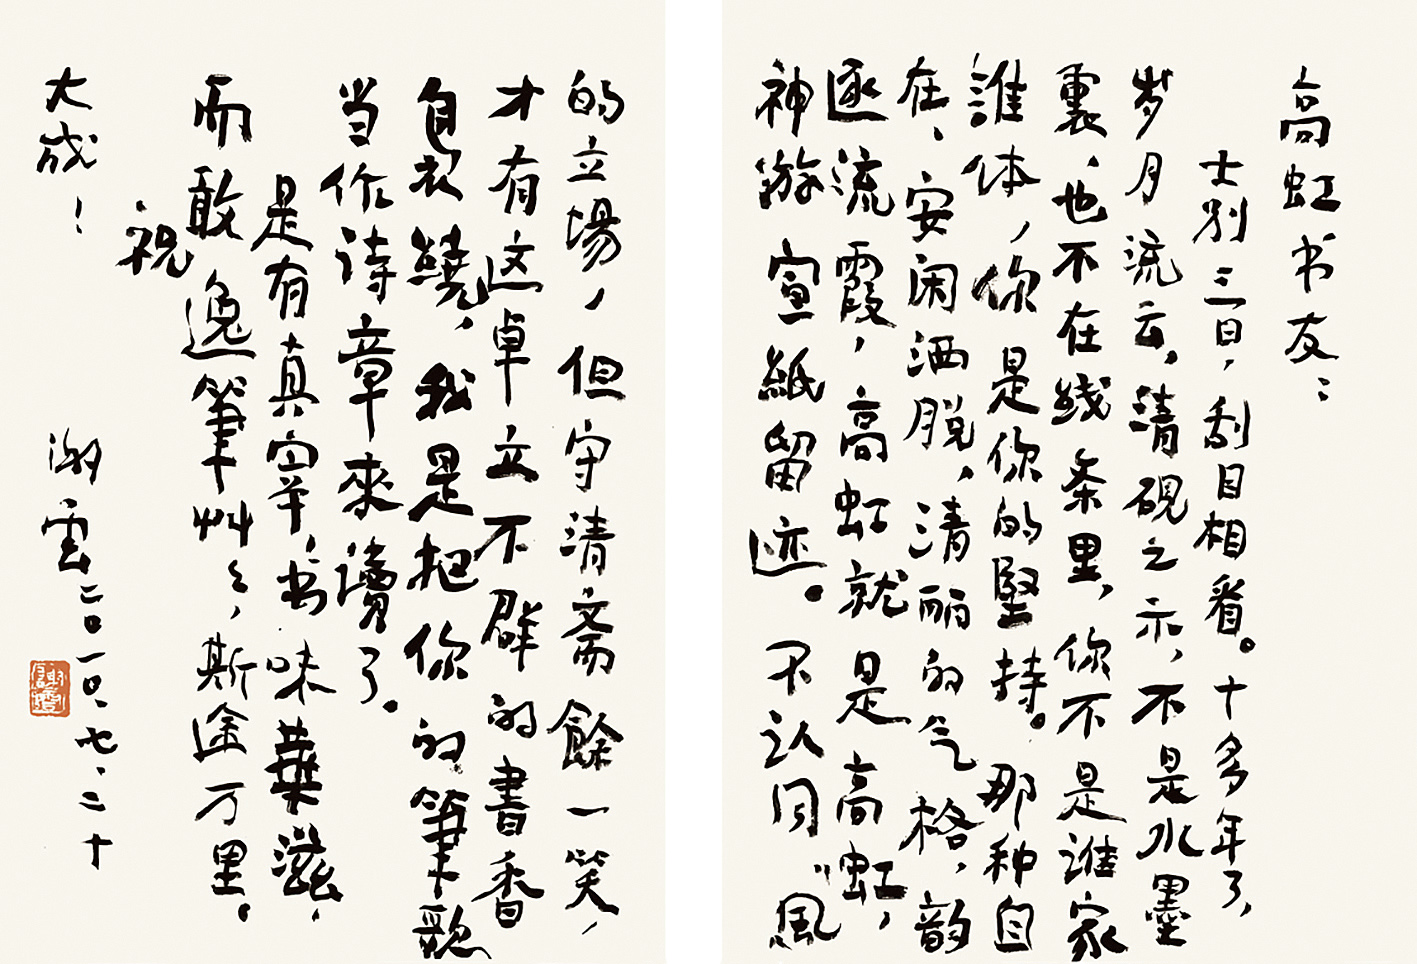 高虹书友：
士别三日，刮目相看。十多年了，
岁月流云，清砚之示，不是水墨
裏、也不在线条里，你不是谁家
誰体，你是你的坚持。那种自
在、安闲洒脱，清丽的气格，韵
逐流霞，高虹就是高虹，
神游宣紙留迹。不认同“風
的立場，但守清斋餘一笑，
才有这卓立不群的書香
自衣繞，我是把你的筆歌
当作诗章來讀了。
是有真宰，书味華滋，
而敢逸筆艸々，斯途万里。
祝
大成！
谢雲二〇一〇、七、二十